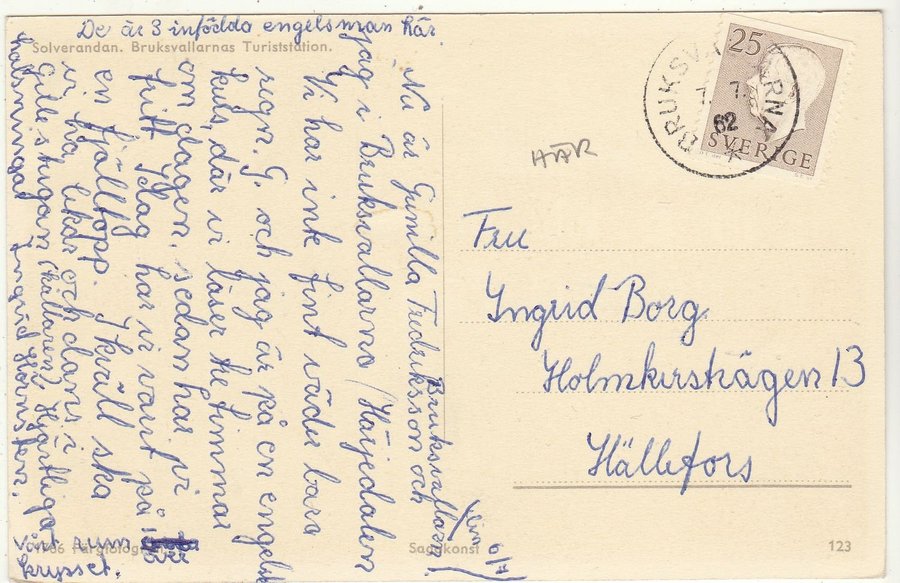 De är 3 infödda engelsman här.
Solverandan. Bruksvallarnas Turiststation.
Bruksvallarna
den 6/7
Nu är Gunilla Fredriksson och
jag i Bruksvallarna (Härjedalen
Vi har inte fint väder bara
regn. G. och jag är på en engelsk
kurs, där vi läser tre timmar
om dagen, sedan har vi
fritt. Idag har vi varit på
en fjälltopp. Ikväll ska
vi ha lekar och dans i
Gillestugan (källaren) Hjärtliga
hälsningar Ingrid
vårt rum
över
krysset.
Färgfoto
Sagakonst
123
HÄR
25
SVERIGE
BRUKSVALLARNA
7. 7.
62
Fru
Ingrid Borg
Holmkurshägen 13
Hällefors